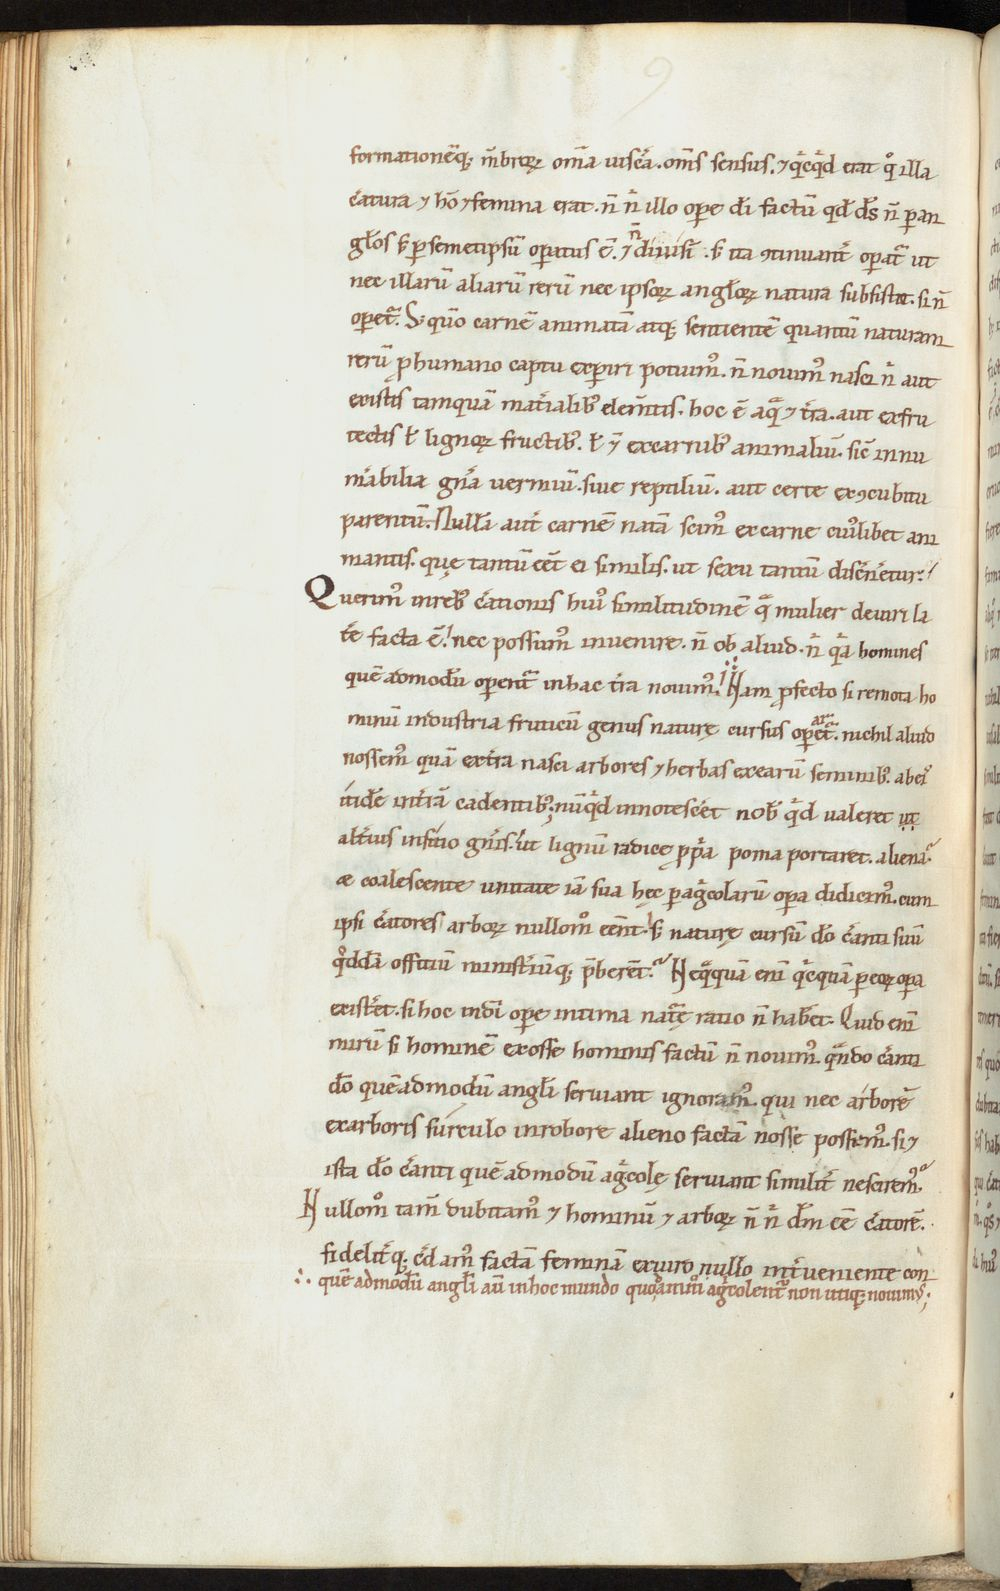 formationēq; mēbroꝝ om̄ia uiscēa. om̄s sensus. ⁊ qͥcqͥd erat qͦ illa
c̄atura ⁊ hō ⁊ femina erat. n̄ nͥ illo oꝑe di factū qd d̄s n̄ ꝑ an
głos s; ꝑ semetipsū oꝑatus ē. ⁊ n̄ dimisit. s; ita ꝯtinuant̄ oꝑat᷑ ut
nec illarū aliarū rerū nec ipsoꝝ angłoꝝ natura subsistat. si n̄
oꝑet᷑. S; quō carnē animatā atq; sentientē quantū naturam
rerū ꝓ humano captu exꝑiri potuimꝰ. n̄ nouimꝰ nasci nͥ aut
existis tamquā mat̄ialibꝰ elem̄tis. hoc ē aqͣ ⁊ t̄ra. aut ex fru
tectis ł lignoꝝ fructibꝰ. ł ⁊ ex carnibꝰ animaliū. sic̄ innu
m̄abilia gn̄a uermiū. siue reptiliū. aut certe ex ꝯcubitu
parentū. Nullā aut̄ carnē natā scimꝰ ex carne cuiꝰlibet ani
mantis. que tantū eēt ei similis. ut sexu tantū discn̄etur.
Querimꝰ in rebꝰ c̄ationis huiꝰ similitudinē qͣ mulier de uiri la
t̄e facta ē. nec possumꝰ inuenire. n̄ ob aliud. nͥ qͥa homines
quē admodū oꝑent᷑ in hac t̄ra nouimꝰ. Nam ꝓfecto si remota ho
minū industria fruticū genus nature cursus oꝑaret᷑. nichil aliud
nossemꝰ quā extra nasci arbores ⁊ herbas ex earū seminibꝰ. ab eiꝰ
itidē in t̄rā cadentibꝰ; nūqͥd innotesc̄et nob̄ qͥd ualeret ut
alt̄ius insitio gn̄is. ut lignū radice ꝓpͥa poma portaret. aliena.
æ coalescente unitate iā sua hec ꝑ agͥcolarū oꝑa didicimꝰ. cum
ipsi c̄atores arboꝝ nullomͦ eēnt. s; nature cursū dō c̄anti suū
qͦddā offitiū minist̄iūq; p̄berēt. Neqͣquā enī qͥcquā ꝑ eoꝝ oꝑa
exist̄et. si hoc in dī oꝑe intima nat᷑e ratio n̄ habet. Quid enī
mirū si hominē ex osse hominis factū n̄ nouimꝰ. qͣndo c̄anti
dō quēadmodū angłi seruiant ignoramꝰ. qui nec arborē
ex arboris surculo in robore alieno factā nosse possemꝰ. si ⁊
ista dō c̄anti quē admodū agͥcole seruiant similit̄ nesciremꝰ.
Nullomͦ tam̄ dubitamꝰ ⁊ hominū ⁊ arboꝝ n̄ nͥ dm̄ eē c̄atorē.
fidelit̄q; c̄damꝰ factā feminā ex uiro nullo int̄ueniente con
∴ quē admodū angłi aū in hoc mundo quoͦ animͦ agͥcolent᷑ non utiq; nouimꝰ;